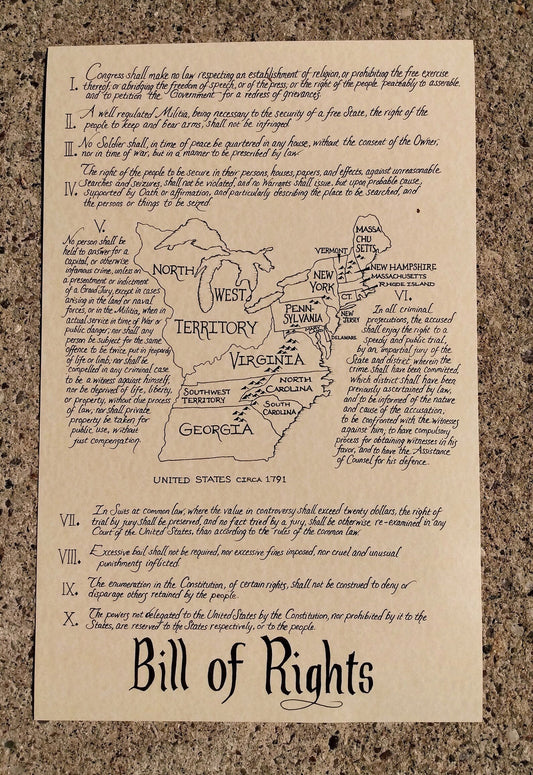 I. Congress shall make no law respecting an establishment of religion, or prohibiting the free exercise
thereof; or abridging the freedom of speech, or of the press, or the right of the people peaceably to assemble,
and to petition the Government for a redress of grievances.
II. A well regulated Militia, being necessary to the security of a free State, the right of the
people to keep and bear arms, shall not be infringed.
III. No Soldier shall, in time of peace be quartered in any house, without the consent of the Owner,
nor in time of war, but in a manner to be prescribed by law.
The right of the people to be secure in their persons, houses, papers, and effects, against unreasonable
IV. searches and seizures, shall not be violated, and no Warrants shall issue, but upon probable cause,
supported by Oath or affirmation, and particularly describing the place to be searched, and
the persons or things to be seized.
V.
No person shall be
held to answer for a
capital, or otherwise
infamous crime, unless on
a presentment or indictment
of a Grand Jury, except in cases
arising in the land or naval
forces, or in the Militia, when in
actual service in time of War or
public danger; nor shall any
person be subject for the same
offence to be twice put in jeopardy
of life or limb; nor shall be
compelled in any criminal case
to be a witness against himself,
nor be deprived of life, liberty,
or property, without due process
of law; nor shall private
property be taken for
public use, without
just compensation.
NORTH
WEST
TERRITORY
MASSA
CHU
SETTS
VERMONT
NEW HAMPSHIRE
MASSACHUSETTS
RHODE ISLAND
NEW
YORK
CT.
PENN
SYLVANIA
NEW
JERSEY
DELAWARE
VIRGINIA
NORTH
CAROLINA
SOUTHWEST
TERRITORY
SOUTH
CAROLINA
GEORGIA
VI.
In all criminal
prosecutions, the accused
shall enjoy the right to a
speedy and public trial,
by an impartial jury of the
State and district wherein the
crime shall have been committed,
which district shall have been
previously ascertained by law,
and to be informed of the nature
and cause of the accusation;
to be confronted with the witnesses
against him; to have compulsory
process for obtaining witnesses in his
favor, and to have the Assistance
of Counsel for his defence.
UNITED STATES CIRCA 1791
VII. In Suits at common law, where the value in controversy shall exceed twenty dollars, the right of
trial by jury shall be preserved, and no fact tried by a jury, shall be otherwise re-examined in any
Court of the United States, than according to the rules of the common law.
VIII. Excessive bail shall not be required, nor excessive fines imposed, nor cruel and unusual
punishments inflicted.
IX. The enumeration in the Constitution, of certain rights, shall not be construed to deny or
disparage others retained by the people.
X. The powers not delegated to the United States by the Constitution, nor prohibited by it to the
States, are reserved to the States respectively, or to the people.
Bill of Rights